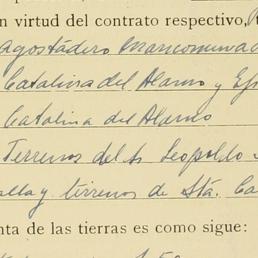 n virtud del contrato respectivo,
Agostadero Mancomunad
Catalina del Alamo y Ef
Catalina del Alamo
Terrenos del Sr Leopoldo
alla y terrenos de Sta. Ca
nta de las tierras es como sigue: